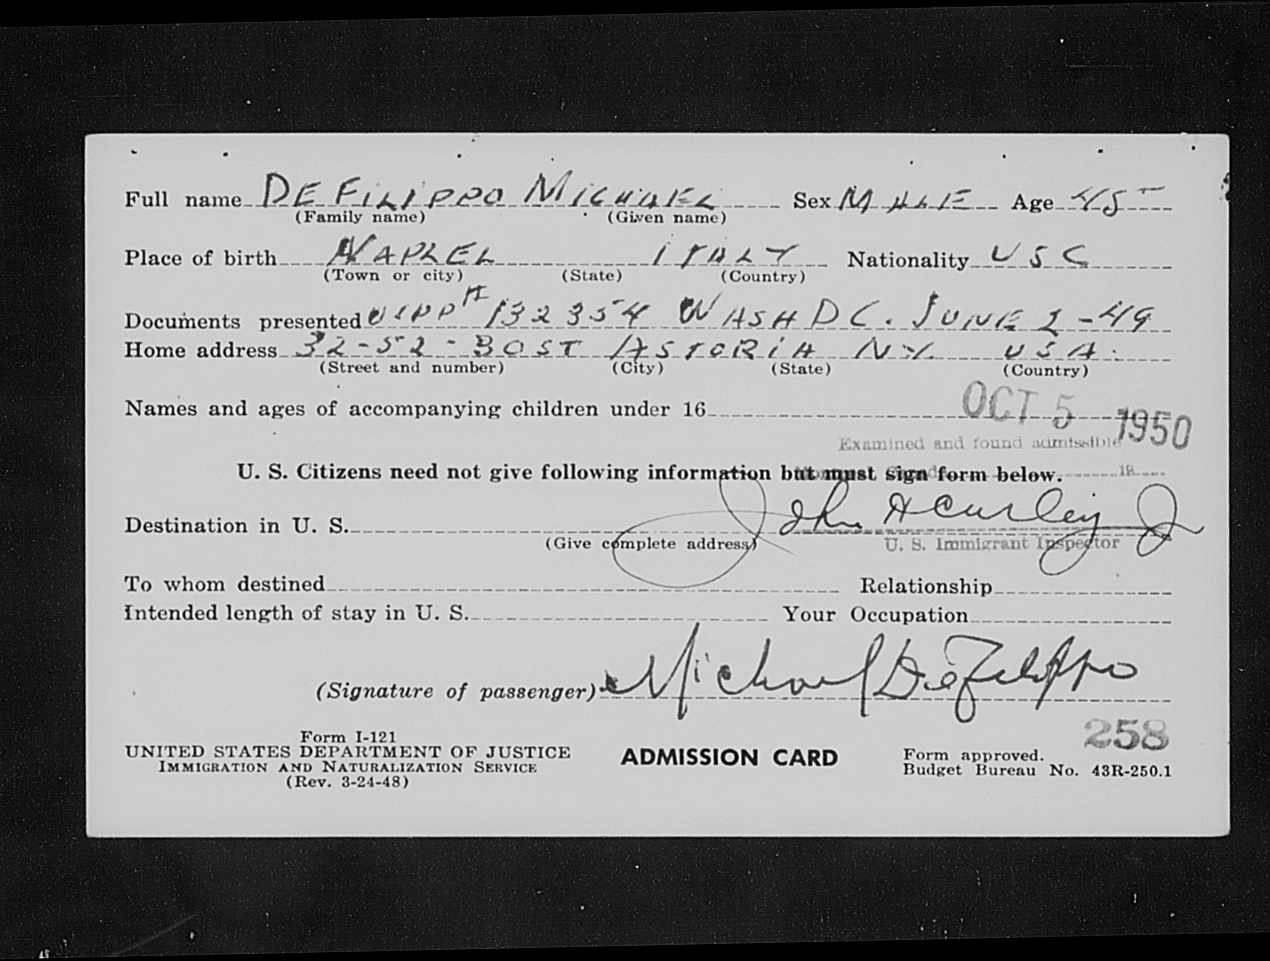 Full name DE FILIPPO MICHAEL Sex MALE Age 45
(Family name) (Given name)
Place of birth NAPLEL ITALY Nationality USC
(Town or city) (State) (Country)
Documents presented USPP # 132354 WASH DC. JUNE 1-49
Home address 32-52-30ST ASTORIA NY. USA.
(Street and number) (City) (State) (Country)
Names and ages of accompanying children under 16
OCT 5 1950
Examined and found admissible
U. S. Citizens need not give following information but must sign form below.
19
John H Curley Jr
Destination in U. S.
(Give complete address) U. S. Immigrant Inspector
To whom destined Relationship
Intended length of stay in U. S. Your Occupation
(Signature of passenger) Michael DeFilippo
258
Form I-121
UNITED STATES DEPARTMENT OF JUSTICE ADMISSION CARD Form approved.
IMMIGRATION AND NATURALIZATION SERVICE Budget Bureau No. 43R-250.1
(Rev. 3-24-48)